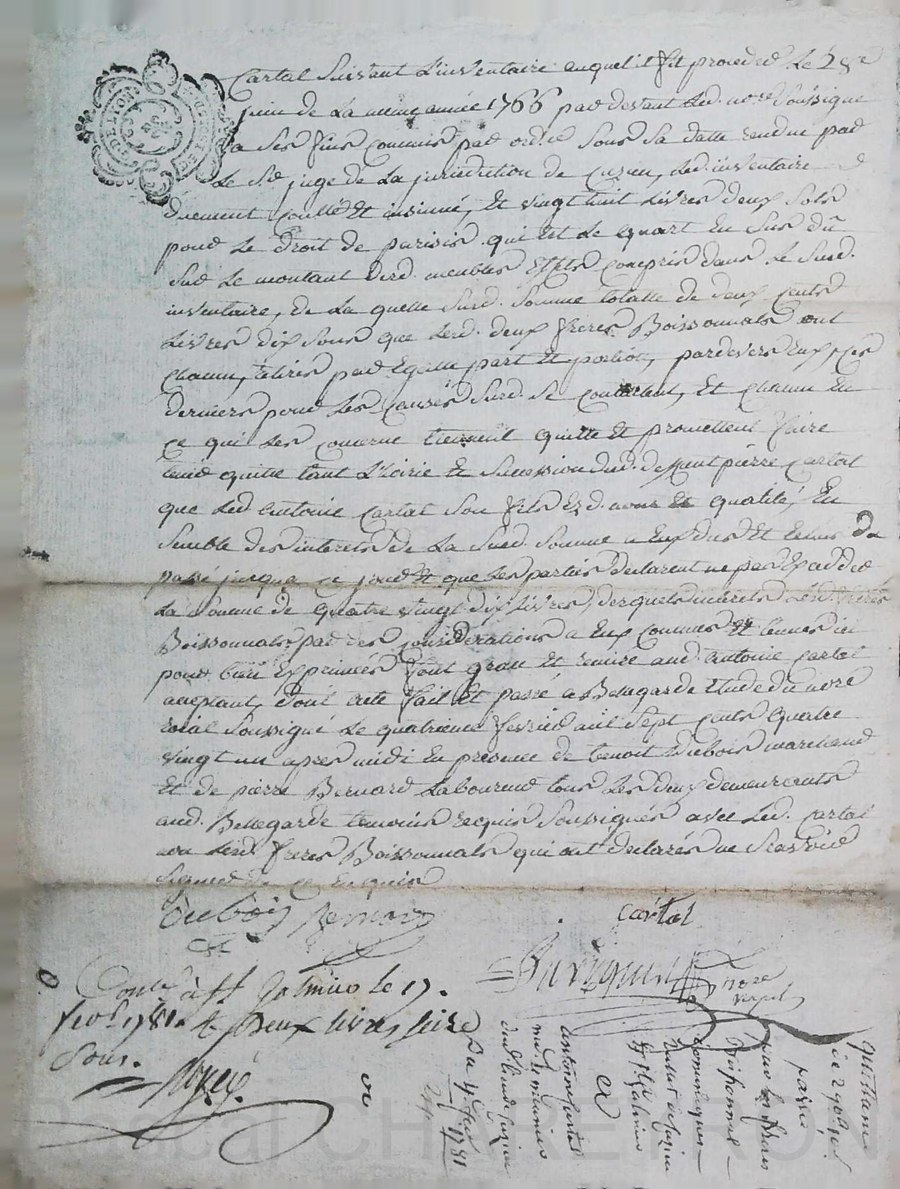 Cartal suivant l'inventaire auquel il fut procedé le 28e
juin de la meme année 1766 par devant led. nore soussigné
a ses fins commis par ord.ce sous sa datte rendue par
le Sr juge de la jurisdiction de Cuzieu, led. inventaire
duement collé et insinué, et vingt huit livres deux sols
pour le droit de parisis qui est le quart en sus du
sur le montant desd. meubles effets compris dans le susd.
inventaire, de la quelle susd. somme totalle de deux cents
livres dix sous que lesd. deux freres Boissonnats ont
chacun, retirés par egalle part et portion, pardevers eux, ces
derniers pour les causes susd. se contentent, et chacun en
ce qui les concerne tiennent quitte et promettent faire
tenir quitte tant l'hoirie et succession dud. deffunt pierre Cartal
que led. antoine Cartal son fils ezd. noms et qualité, en
semble des interets de la susd. somme a eux dus et echus du
passé jusqua ce jour et que les parties declarent ne pas exceder
la somme de quatre vingt dix livres, desquels interets lesd. freres
Boissonnats par des considerations a eux connues et tenues ici
pour bien exprimées font grace et remise aud. antoine Cartal
acceptant, dont acte fait et passé a Bellegarde etude du nore
roial soussigné le quatrieme fevrier mil sept cents quatre
vingt un apres midi en presence de benoit Dubois marchand
et de pierre Bernard laboureur tous les deux demeurants
aud. Bellegarde temoins requis soussignés avec led. Cartal
non lesd. freres Boissonnats qui ont declarés ne scavoir
signer de ce enquis
Dubois Bernard
cartal
nore
royal
Contlé à St Galmier le 17.
fevr 1781. R. Deux livres seize
sous.
du 4e fevr 1781
antoine Cartal
quittance
passée
par les freres
Boissonnats
a
St Galmier